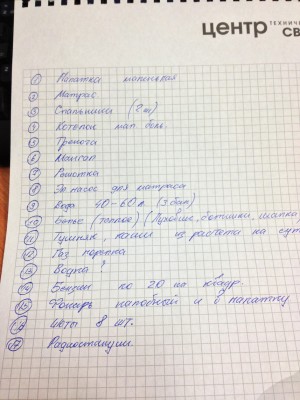 ТЕХНИЧЕС
ЦЕНТР СВ
1 Палатка маленькая
2 Матрас
3 Спальники (2 шт)
4 Котелок мал. бол.
5 Тренога
6 Мангал
7 Решетка
8 Эл насос для матраса
9 Вода 40-60 л (3 бал)
10 Белье (теплое) (Пуховик, ботинки, шапка,
11 Тушняк, каши из расчета на сут
12 Газ горелка
13 Водка?
14 Бензин по 20 на квадр.
15 Фонарь налобный и в палатку
16 Щеты 8 шт.
17 Радиостанции